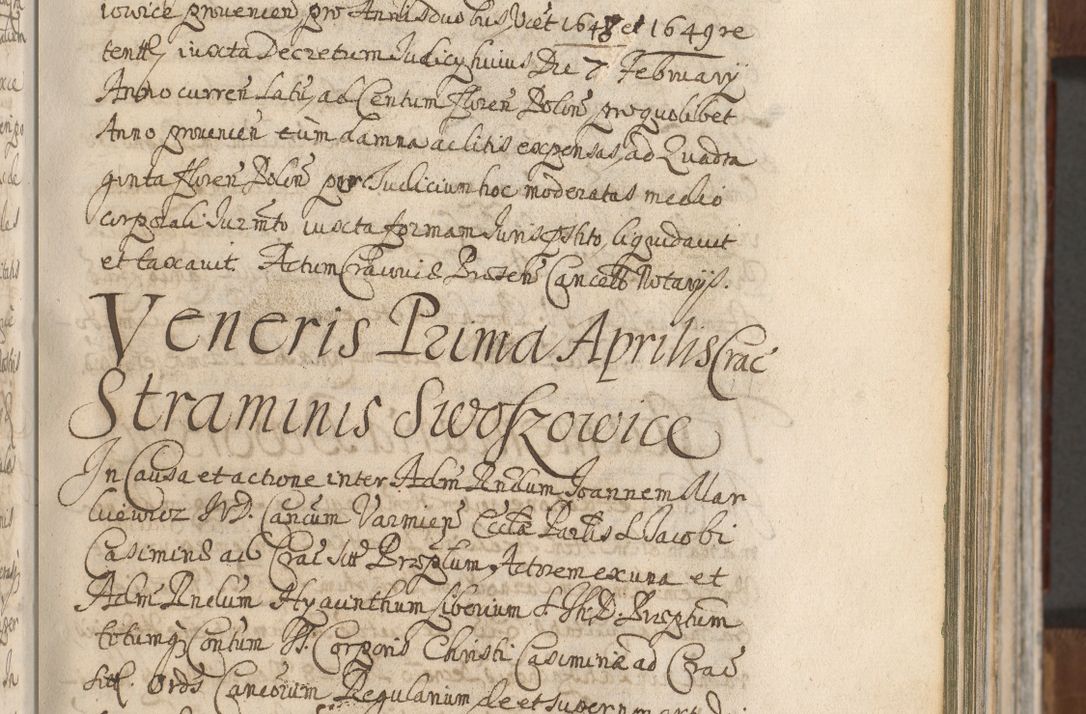 iowice provenien pro Annis duobus Vcet 1648 et 1649 re
tentt iuxta Decretum Judicy huius Die 7 February
Anno curren Latu ad Centum floren Polon pro quolibet
Anno provenien cum damna ac litis expensas ad Quadra
ginta floren Polon per Judicium hoc moderatas medio
corporali Jurmto iuxta formam Juris pstito liquidavit
et taxavit. Actum Cracoviæ Presen Cancell Notarijs.
Veneris Prima Aprilis Crac
Straminis Swoszowice
In Causa et actione inter Adm Rndum Joannem Mar
kiewicz JVD. Cancum Varmien Ecclæ Partis S Jacobi
Casimiriæ ad Crac sitt Præptum Actorem ex una et
Adm Rndum Hyacinthum Liberium S Th. D. Præptum
totumq Contum SS. Corporis Christi Casimiriæ ad Crac
sitt. Ords Cancorum Regularium de et super